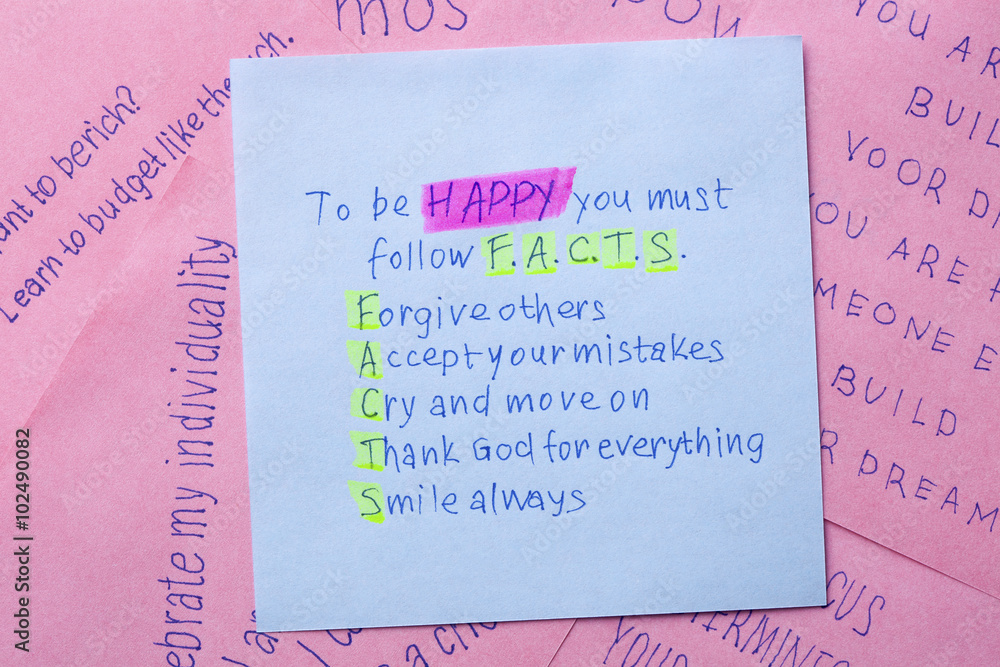 To be HAPPY you must
follow F.A.C.T.S.
Forgive others
Accept your mistakes
Cry and move on
Thank God for everything
Smile always
to be rich?
Learn to budget like the
my individuality
MOS
YOU
YOU AR
BUIL
YOOR
YOU ARE
MEONE
BUILD
DREAM
CUS
YOUR
Adobe Stock | #102490082